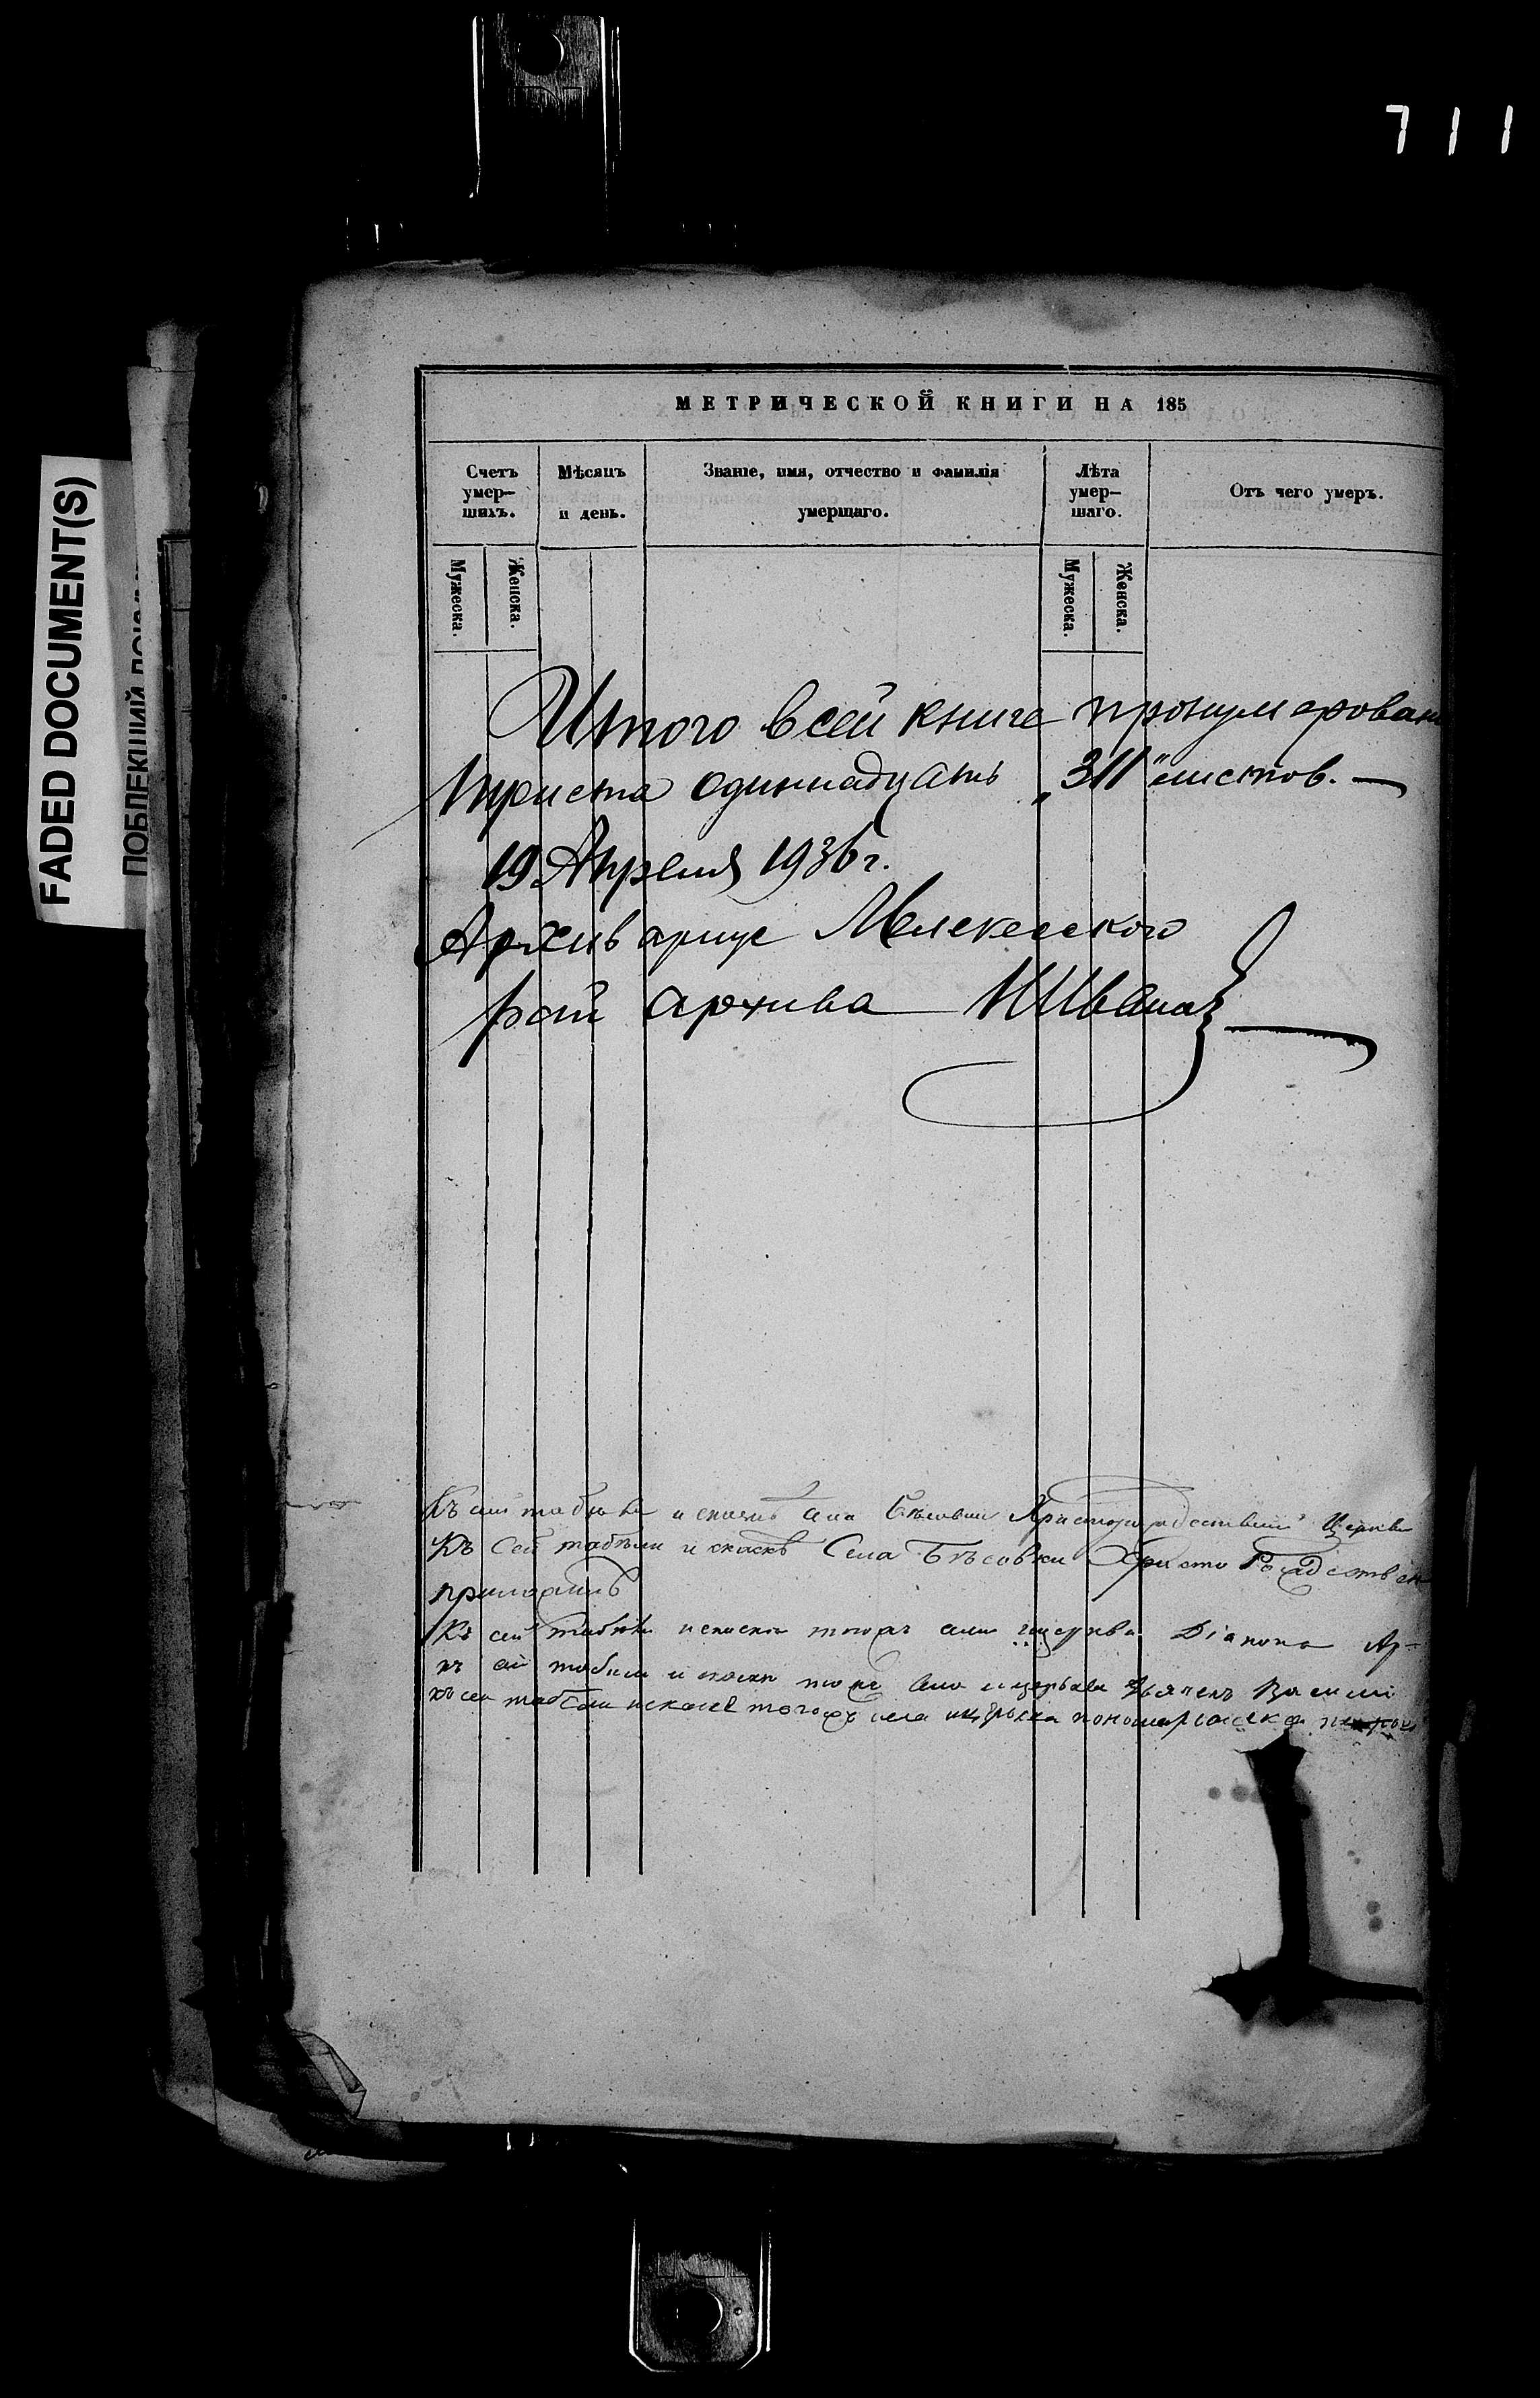 711
FADED DOCUMENT(S)
ПОБЛЕКШИЙ
МЕТРИЧЕСКОЙ КНИГИ НА 185
Счетъ умер-
шихъ.
Мѣсяцъ
и день.
Званіе, имя, отчество и фамилія
умершаго.
Лѣта
умер-
шаго.
Отъ чего умеръ.
Мужеска.
Женска.
Мужеска.
Женска.
Итого в сей книге пронумерован
триста одиннадцать „311" листов. —
19 Апреля 1936 г.
Архивариус Мелекесского
рай архива
Къ сей табели и Христорождественской Церкви
Къ Сей табели и скаскѣ Села Бѣсовки Христо Рождествен
приложилъ
Къ сей табели и скаскѣ тогожъ села и церкви Діаконъ
къ сей табели и тогожъ села и церкви Дьячекъ Василій
къ сей табели и скаске тогожъ села и церкви пономарь